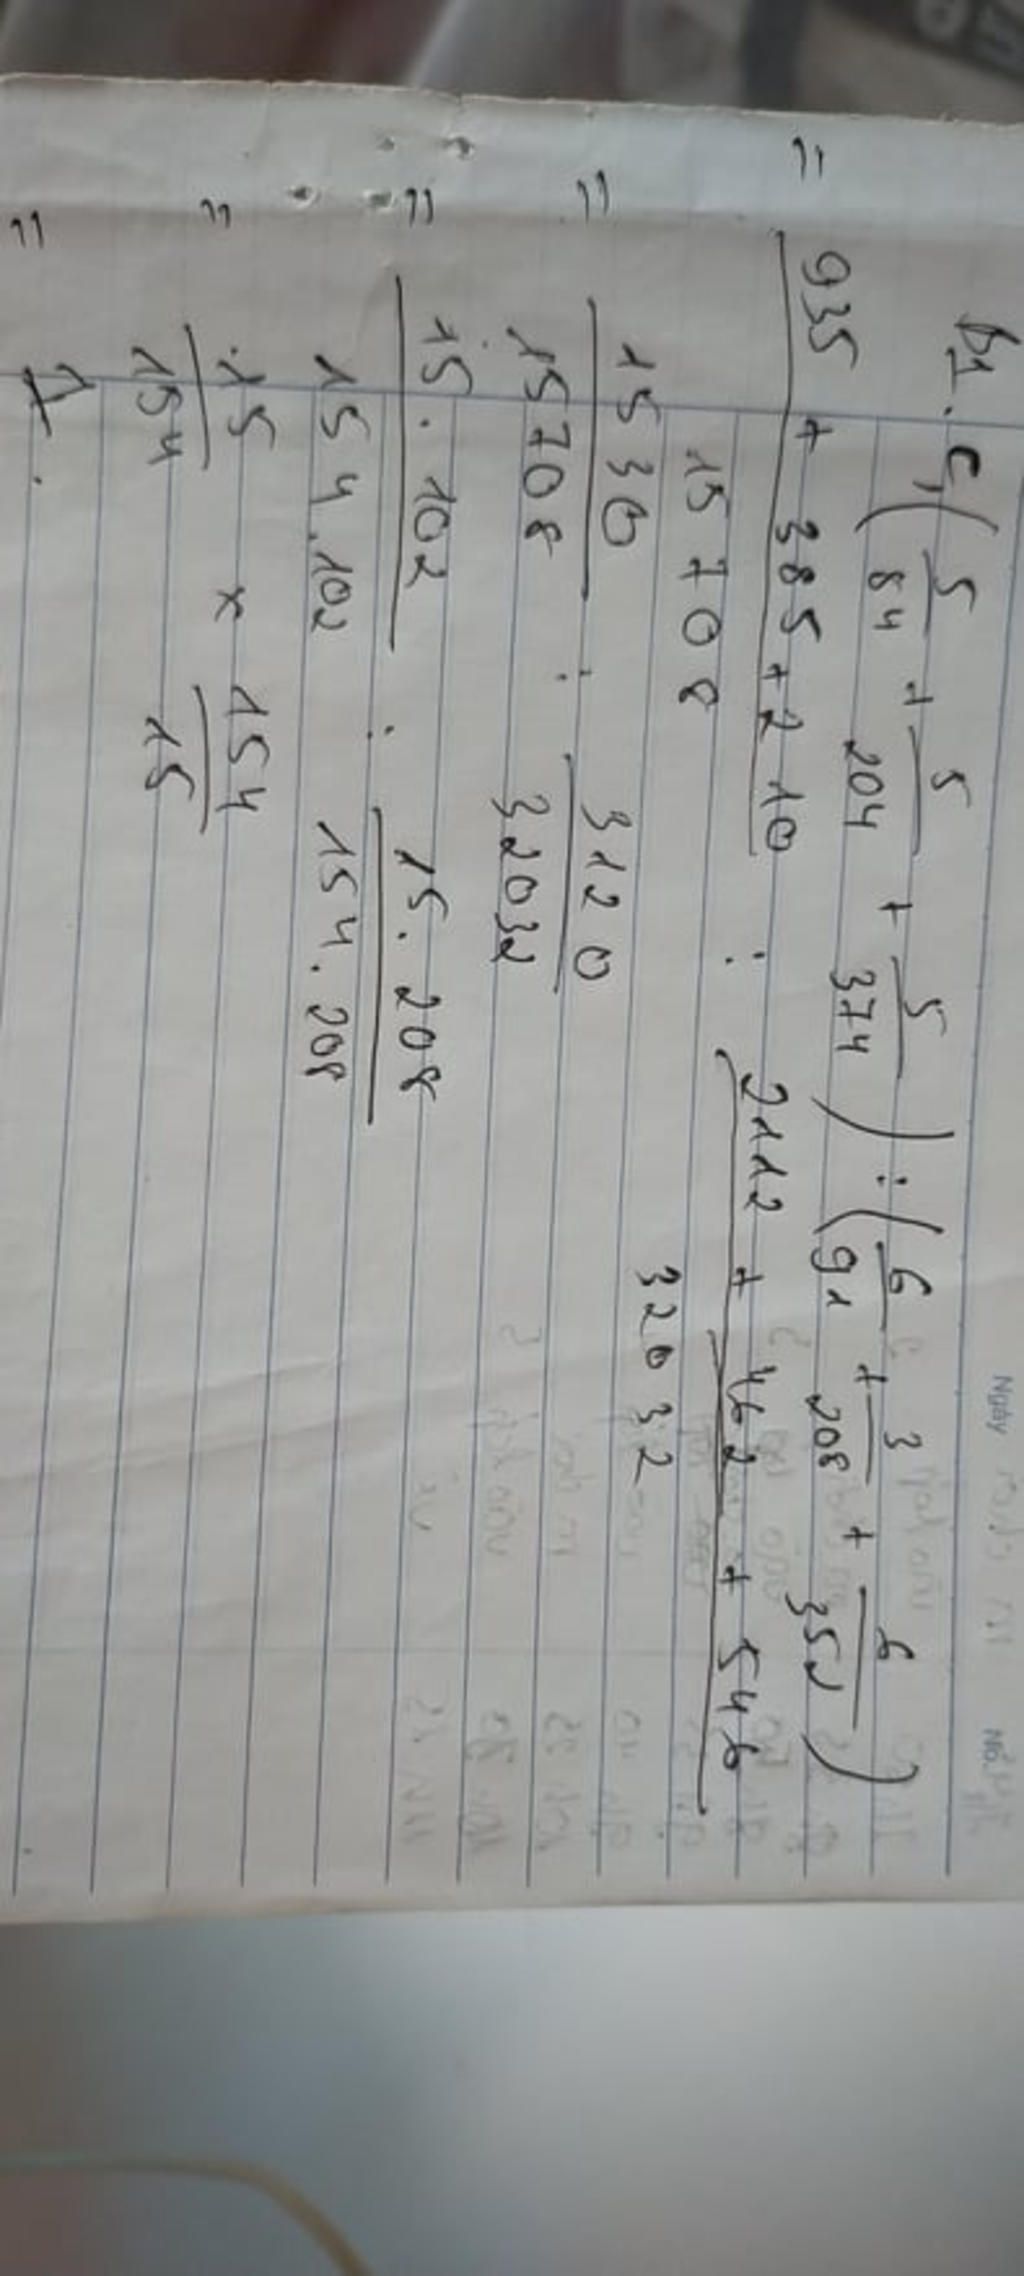 B1. C, ( 5/84 + 5/204 + 5/374 ) : ( 6/91 + 3/208 + 6/352 )
= (935 + 385 + 210)/15708 : (2112 + 462 + 546)/32032
= 1530/15708 : 3120/32032
= 15.102/154.102 : 15.208/154.208
= 15/154 x 154/15
= 1.
Ngày
No.